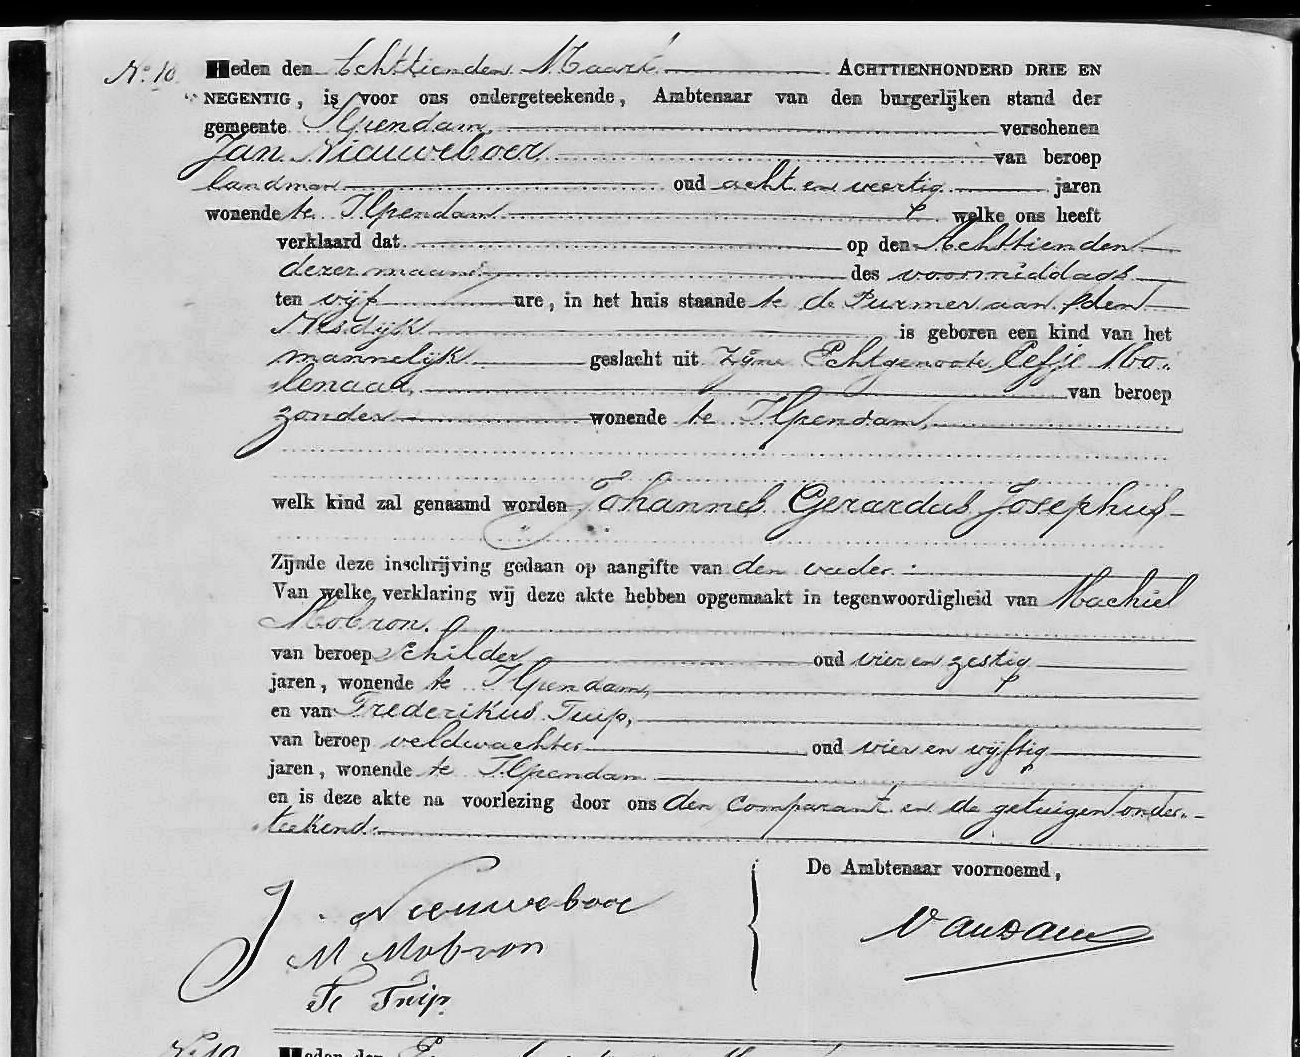 No. 18 Heden den Achttienden Maart ACHTTIENHONDERD DRIE EN
NEGENTIG, is voor ons ondergeteekende, Ambtenaar van den burgerlijken stand der
gemeente Ilpendam, verschenen
Jan Nieuweboer van beroep
landman oud acht en veertig jaren
wonende te Ilpendam welke ons heeft
verklaard dat op den Achttienden
dezer maand des voormiddags
ten vijf ure, in het huis staande te de Purmer aan den
Nesdijk is geboren een kind van het
mannelijk geslacht uit zijne Echtgenoote Eefje Mo-
lenaar, van beroep
zonder wonende te Ilpendam,
welk kind zal genaamd worden Johannes Gerardus Josephus
Zijnde deze inschrijving gedaan op aangifte van den vader
Van welke verklaring wij deze akte hebben opgemaakt in tegenwoordigheid van Machiel
Mobron,
van beroep schilder oud vier en zestig
jaren, wonende te Ilpendam,
en van Frederikus Tuip,
van beroep veldwachter oud vier en vijftig
jaren, wonende te Ilpendam
en is deze akte na voorlezing door ons den comparant en de getuigen onder-
teekend.
De Ambtenaar voornoemd,
J. Nieuweboer
VanDam
M Mobron
Fr Tuip.
Heden den